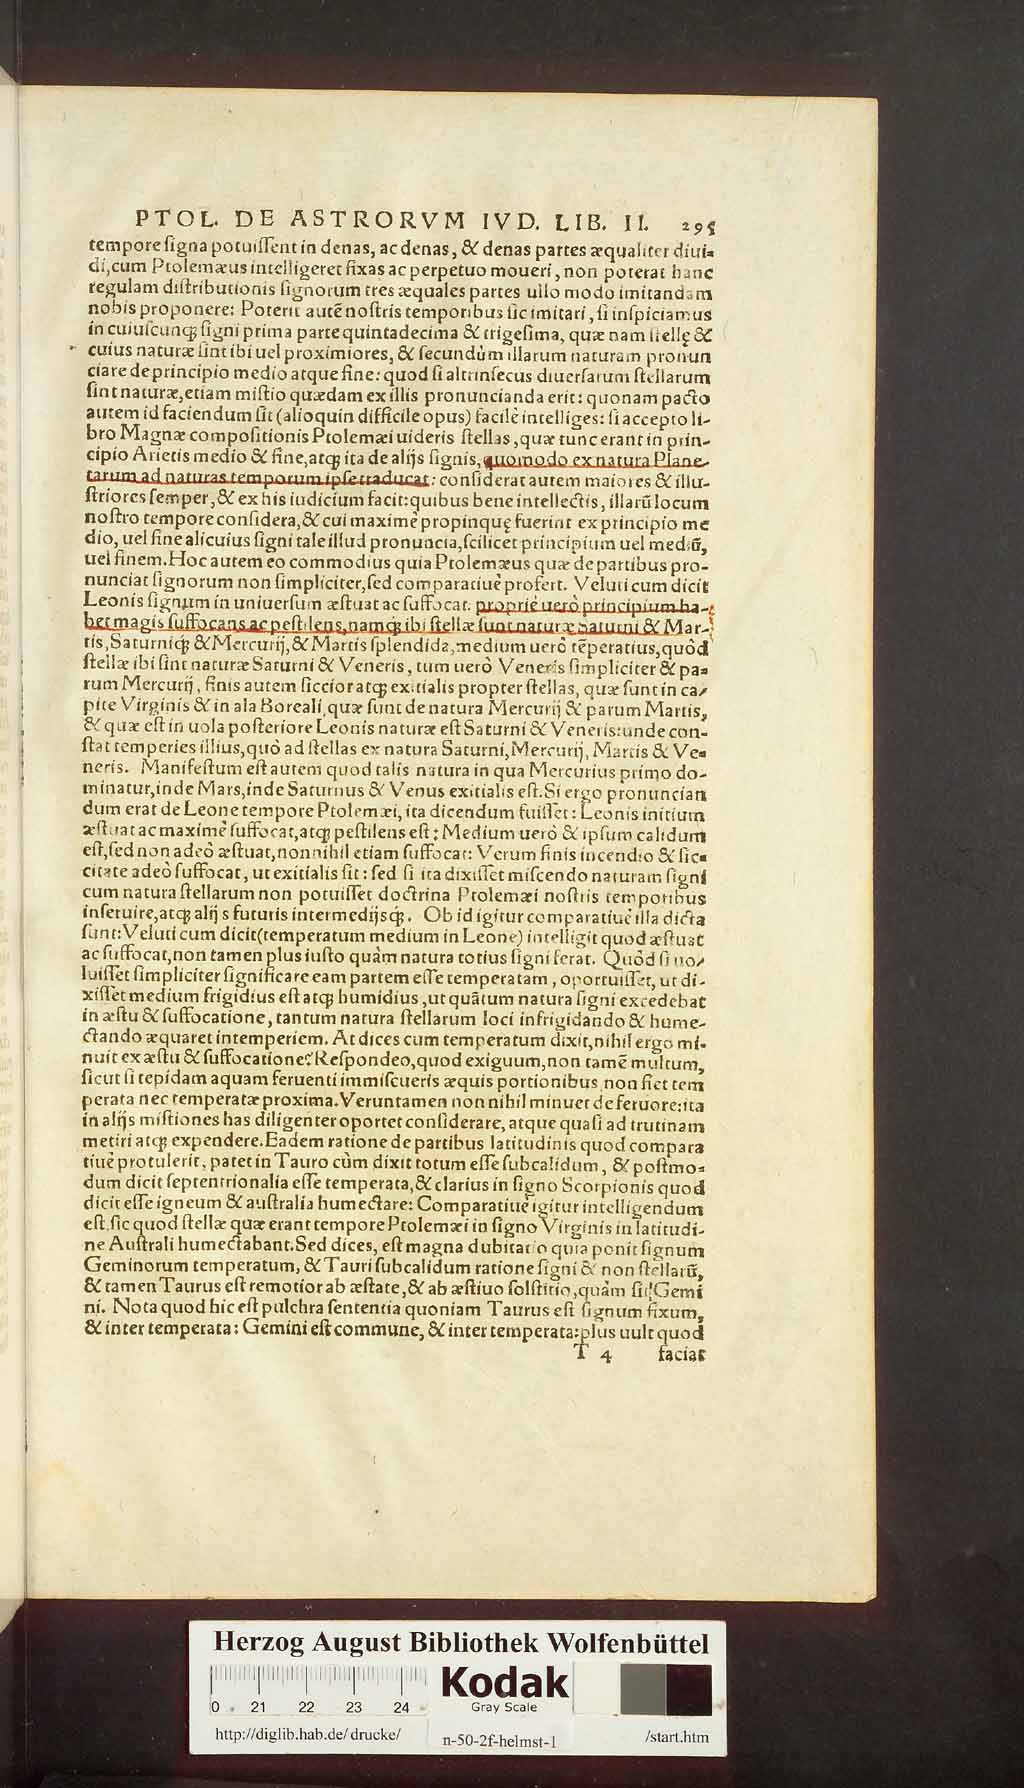 PTOL. DE ASTRORVM IVD. LIB. II. 295
tempore ſigna potuiſſent in denas, ac denas, & denas partes æqualiter diui-
di, cum Ptolemæus intelligeret fixas ac perpetuo moueri, non poterat hanc
regulam diſtributionis ſignorum tres æquales partes ullo modo imitandam
nobis proponere: Poterit autē noſtris temporibus ſic imitari, ſi inſpiciamus
in cuiuſcunqȝ ſigni prima parte quintadecima & trigeſima, quæ nam ſtellę &
cuius naturæ ſint ibi uel proximiores, & ſecundùm illarum naturam pronun
ciare de principio medio atque fine: quod ſi altrinſecus diuerſarum ſtellarum
ſint naturæ, etiam miſtio quædam ex illis pronuncianda erit: quonam pacto
autem id faciendum ſit (alioquin difficile opus) facilè intelliges: ſi accepto li-
bro Magnæ compoſitionis Ptolemæi uideris ſtellas, quæ tunc erant in prin-
cipio Arietis medio & fine, atqȝ ita de alijs ſignis, quomodo ex natura Plane-
tarum ad naturas temporum ipſe traducat: conſiderat autem maiores & illu-
ſtriores ſemper, & ex his iudicium facit: quibus bene intellectis, illarū locum
noſtro tempore conſidera, & cui maximè propinquę fuerint ex principio me
dio, uel fine alicuius ſigni tale illud pronuncia, ſcilicet principium uel mediū,
uel finem. Hoc autem eo commodius quia Ptolemæus quæ de partibus pro-
nunciat ſignorum non ſimpliciter, ſed comparatiuè profert. Veluti cum dicit
Leonis ſignum in uniuerſum æſtuat ac ſuffocat. propriè uerò principium ha-
bet magis ſuffocans ac peſtilens, namqȝ ibi ſtellæ ſunt naturæ Saturni & Mar-
tis, Saturniqȝ & Mercurij, & Martis ſplendida, medium uerò tēperatius, quòd
ſtellæ ibi ſint naturæ Saturni & Veneris, tum uerò Veneris ſimpliciter & pa-
rum Mercurij, finis autem ſiccior atqȝ exitialis propter ſtellas, quæ ſunt in ca-
pite Virginis & in ala Boreali, quæ ſunt de natura Mercurij & parum Martis,
& quæ eſt in uola poſteriore Leonis naturæ eſt Saturni & Veneris: unde con-
ſtat temperies illius, quò ad ſtellas ex natura Saturni, Mercurij, Martis & Ve-
neris. Manifeſtum eſt autem quod talis natura in qua Mercurius primo do-
minatur, inde Mars, inde Saturnus & Venus exitialis eſt. Si ergo pronuncian
dum erat de Leone tempore Ptolemæi, ita dicendum fuiſſet: Leonis initium
æſtuat ac maximè ſuffocat, atqȝ peſtilens eſt: Medium uerò & ipſum calidum
eſt, ſed non adeò æſtuat, nonnihil etiam ſuffocat: Verum finis incendio & ſic-
citate adeò ſuffocat, ut exitialis ſit: ſed ſi ita dixiſſet miſcendo naturam ſigni
cum natura ſtellarum non potuiſſet doctrina Ptolemæi noſtris temporibus
inſeruire, atqȝ alijs futuris intermedijsqȝ. Ob id igitur comparatiuè illa dicta
ſunt: Veluti cum dicit (temperatum medium in Leone) intelligit quod æſtuat
ac ſuffocat, non tamen plus iuſto quàm natura totius ſigni ferat. Quòd ſi uo-
luiſſet ſimpliciter ſignificare eam partem eſſe temperatam, oportuiſſet, ut di-
xiſſet medium frigidius eſt atqȝ humidius, ut quātum natura ſigni excedebat
in æſtu & ſuffocatione, tantum natura ſtellarum loci infrigidando & hume-
ctando æquaret intemperiem. At dices cum temperatum dixit, nihil ergo mi-
nuit ex æſtu & ſuffocatione? Reſpondeo, quod exiguum, non tamē multum,
ſicut ſi tepidam aquam feruenti immiſcueris æquis portionibus non fiet tem
perata nec temperatæ proxima. Veruntamen nonnihil minuet de feruore: ita
in alijs miſtiones has diligenter oportet conſiderare, atque quaſi ad trutinam
metiri atqȝ expendere. Eadem ratione de partibus latitudinis quod compara
tiuè protulerit, patet in Tauro cùm dixit totum eſſe ſubcalidum, & poſtmo-
dum dicit ſeptentrionalia eſſe temperata, & clarius in ſigno Scorpionis quod
dicit eſſe igneum & auſtralia humectare: Comparatiuè igitur intelligendum
eſt, ſic quod ſtellæ quæ erant tempore Ptolemæi in ſigno Virginis in latitudi-
ne Auſtrali humectabant. Sed dices, eſt magna dubitatio quia ponit ſignum
Geminorum temperatum, & Tauri ſubcalidum ratione ſigni & non ſtellarū,
& tamen Taurus eſt remotior ab æſtate, & ab æſtiuo ſolſtitio, quàm ſit Gemi
ni. Nota quod hic eſt pulchra ſententia quoniam Taurus eſt ſignum fixum,
& inter temperata: Gemini eſt commune, & inter temperata: plus uult quod
T 4 faciat
Herzog August Bibliothek Wolfenbüttel
0 21 22 23 24
Kodak
Gray Scale
http://diglib.hab.de/drucke/ n-50-2f-helmst-1 /start.htm